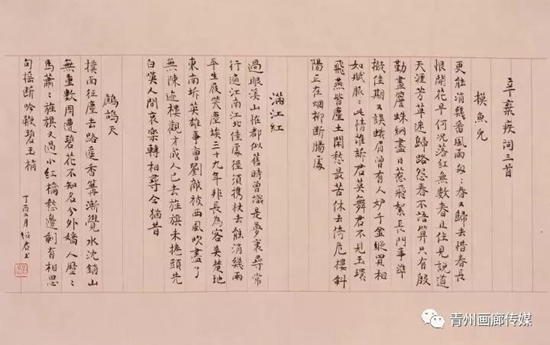 辛棄疾詞三首
摸魚兒
更能消幾番風雨匆匆春又歸去惜春長
恨開花早何況落紅無數春且住見說道
天涯芳草迷歸路怨春不語算只有殷
勤畫簷蛛網盡日惹飛絮長門事準
擬佳期又誤蛾眉曾有人妒千金縱買相
如賦脈〻此情誰訴君莫舞君不見玉環
飛燕皆塵土閑愁最苦休去倚危樓斜
陽正在烟柳斷腸處
滿江紅
過眼溪山怪都似舊時曾識是夢裏尋常
行遍江南江北佳處徑須攜杖去能消幾兩
平生屐笑塵埃三十九年非長為客吳楚地
東南坼英雄事曹劉敵被西風吹盡了
無陳迹樓觀才成人已去旌旗未捲頭先
白嘆人間哀樂轉相尋今猶昔
鷓鴣天
撲面征塵去路遙香篝漸覺水沈銷山
無重數周遭碧花不知名分外嬌人歷〻
馬蕭〻旌旗又過小紅橋愁邊剩有相思
句搖斷吟鞭碧玉梢
丁酉
青州画廊传媒